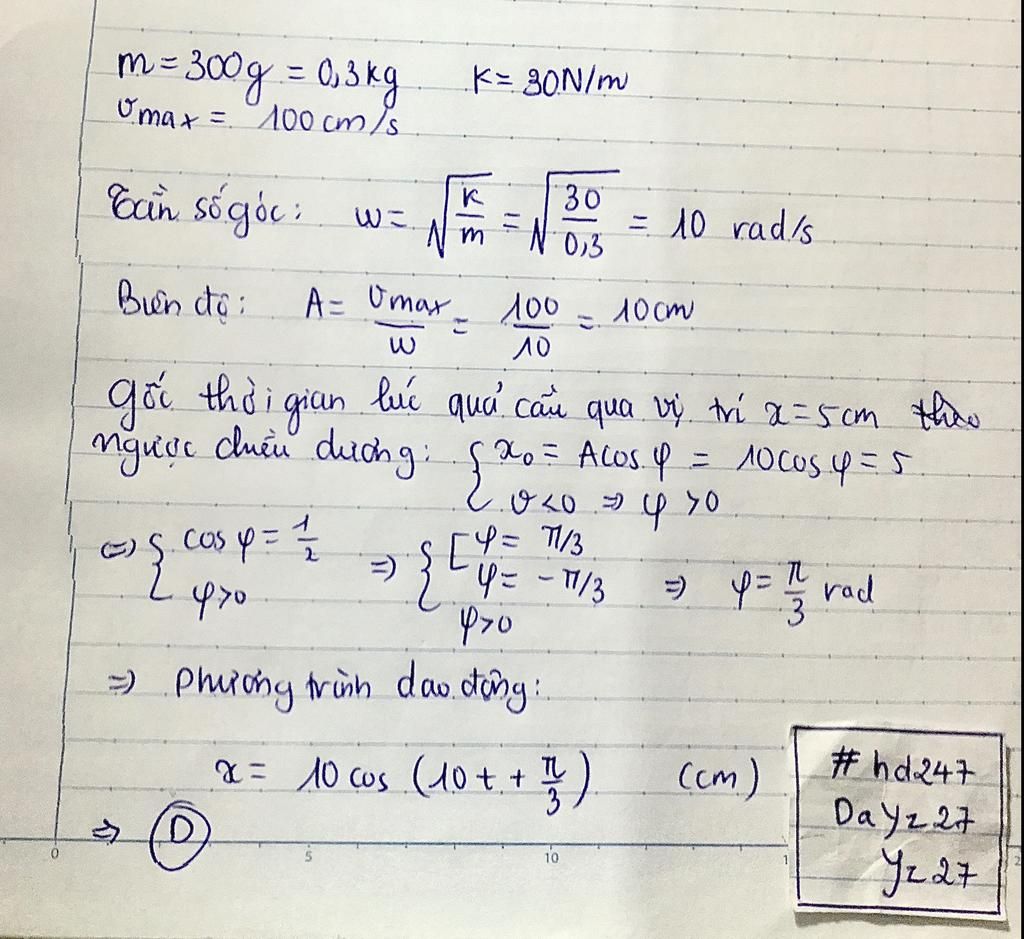 m = 300g = 0,3kg K = 30N/m
vmax = 100cm/s
Tần số góc: w = √(K/m) = √(30/0,3) = 10 rad/s
Biên độ: A = vmax/w = 100/10 = 10cm
Gốc thời gian lúc quả cầu qua vị trí x = 5cm theo
ngược chiều dương: { x₀ = Acos φ = 10cos φ = 5
v < 0 ⇒ φ > 0
⇔ { cos φ = 1/2 ⇒ { [ φ = π/3
φ = -π/3 ⇒ φ = π/3 rad
φ>0 φ>0
⇒ Phương trình dao động:
x = 10 cos (10t + π/3) (cm)
⇒ D
#hd247
DaYz27
Yz27
0 5 10 1 2